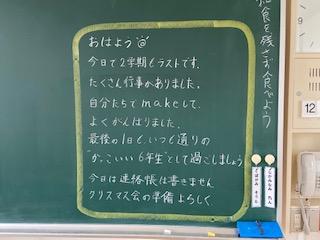 おはよう
今日で2学期もラストです。
たくさん行事がありました。
自分たちでmakeして、
よくがんばりました。
最後の1日も、いつも通りの
"かっこいい6年生"として過ごしましょう
今日は連絡帳は書きません
クリスマス会の準備よろしく
食を残さず食べよう
12